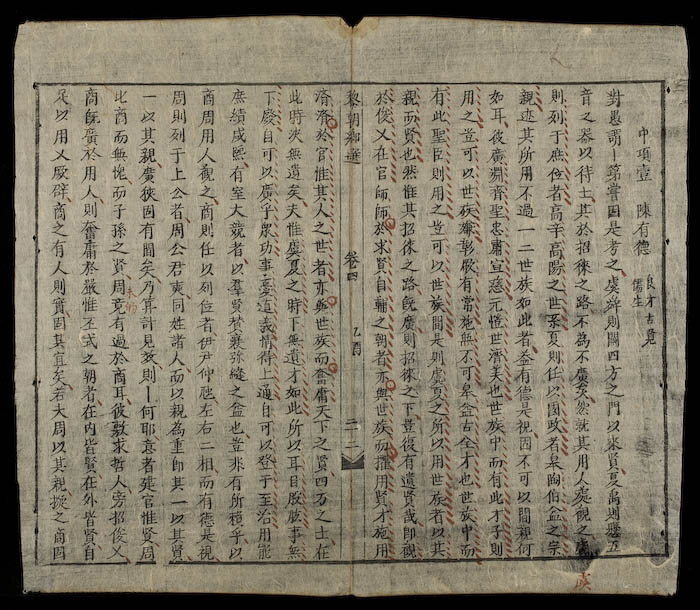 中項壹 陳有德 良才古覽 儒生
對愚謂第嘗因是考之虞舜則闢四方之門以來賢夏禹則懸五
音之器以待士其於招徠之路不為不廣矣然就其用人處觀之虞
則列于庶位者高辛高陽之世系夏則任以國政者皋陶伯益之宗
親迹其所用不過一二世族如此者益有德是視因不可以間親何
如耳彼廣淵齊聖忠肅宣慈元愷世濟美也世族中而有此才子則
用之豈可以世族嫌彰厥有常施無不可皋益古全才也世族中而
有此聖臣則用之豈可以世族間是則虞夏之所以用世族者以其
親而賢也然惟其招徠之路旣廣則招徠之下豈復有遺賢哉即觀
於俊乂在官師師於求賢自輔之朝者亦與世族而推用賢才施用
黎朝鄉選 卷四 乙酉 三十二
濟濟於官惟其人之世者亦與世族而奮庸天下之賢四方之士在
此時決無遺矣夫惟虞夏之時下無遺才如此所以耳目股肱事無
下廢自可以廣乎功事道義情得上通自可以登于至治用能
庶績咸熙有室大競者以羣賢贊襄弥縫之益也豈非有所積乎以
商周用人觀之商則任以列位者伊尹仲虺左右二相而有德是視
周則列于上公者周公君奭同姓諸人而以親為重即其一以其賢
一以其親廣狹固有間矣乃算計見效則一何耶意者建官惟賢周
比商而無愧而子孫之賢周竟有過於商耳彼敷求哲人旁招俊乂
商旣廣於用人則奮庸於嚴惟丕式之朝者在內皆賢在外皆賢自
足以用乂厥辟商之有人則實固其宜矣若大周以其親揆之商固